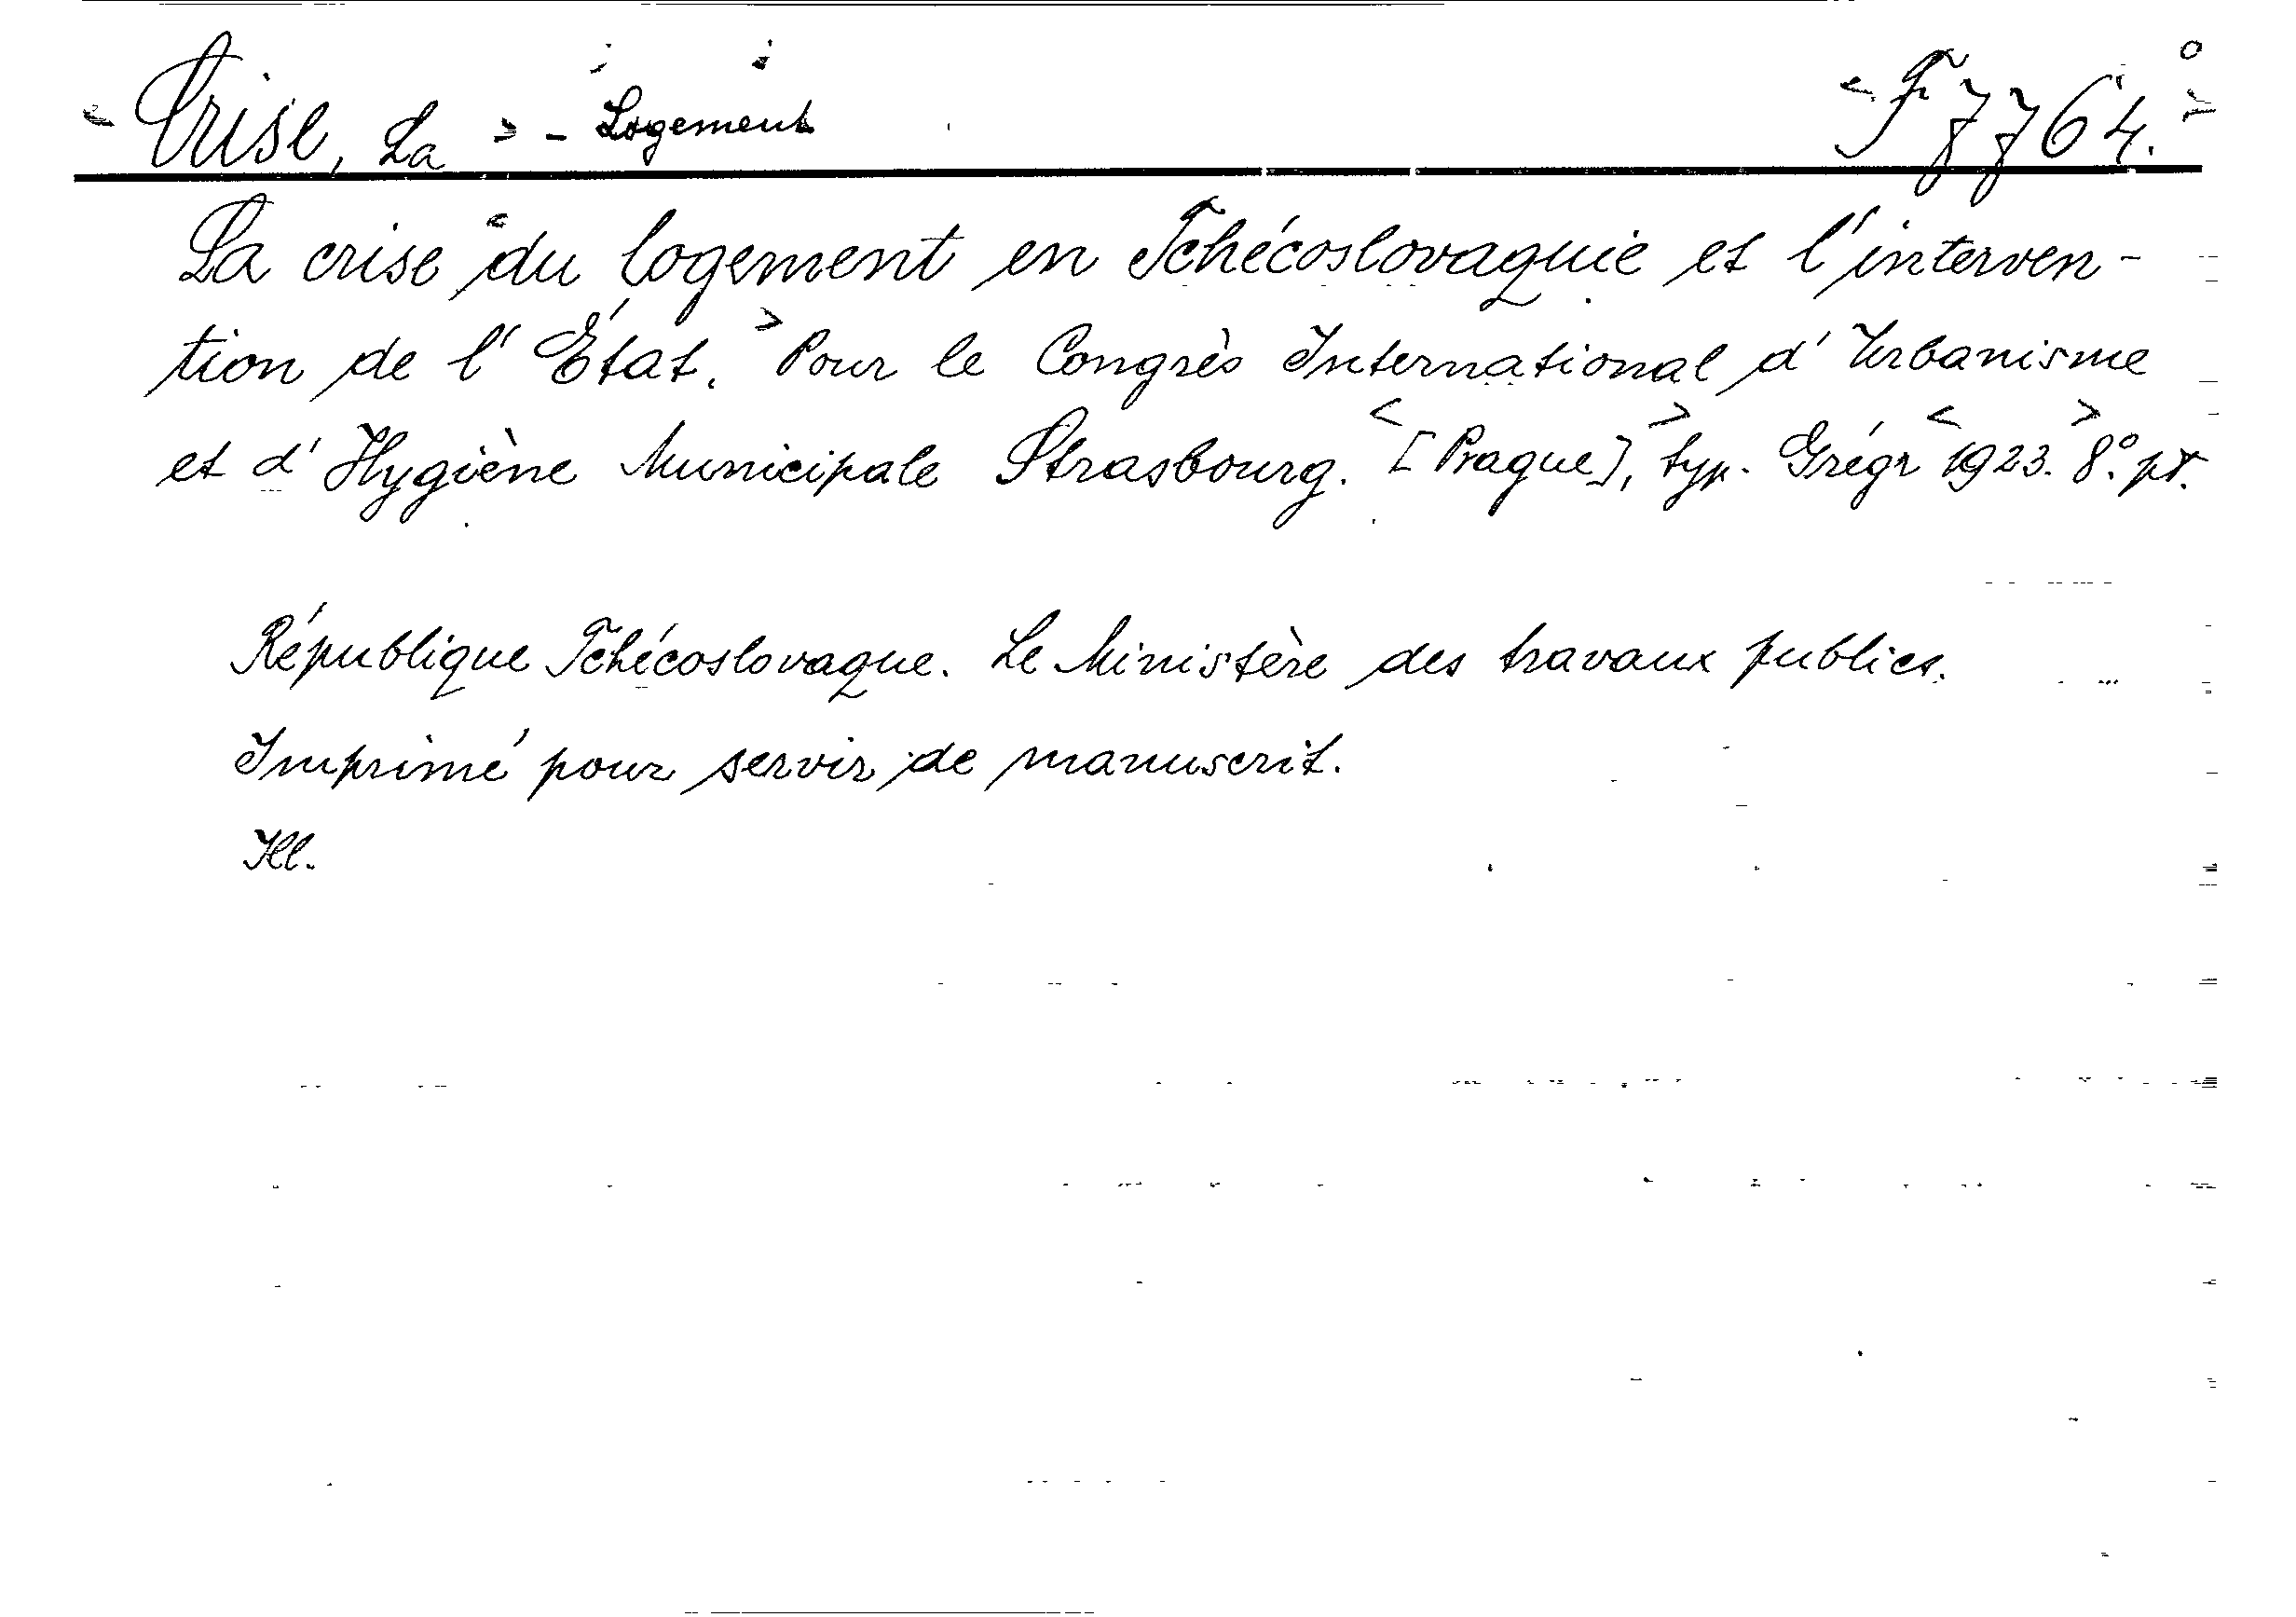 < Crise, La > - Logement < F 7764. >
La crise < du logement en Tchécoslovaquie et l'interven-
tion de l'État. > Pour le Congrès International d'Urbanisme
et d'Hygiène Municipale Strasbourg. < [Prague], > typ. Grégr < 1923. > 8°. pt.
République Tchécoslovaque. Le Ministère des travaux publics.
Imprimé pour servir de manuscrit.
Ill.